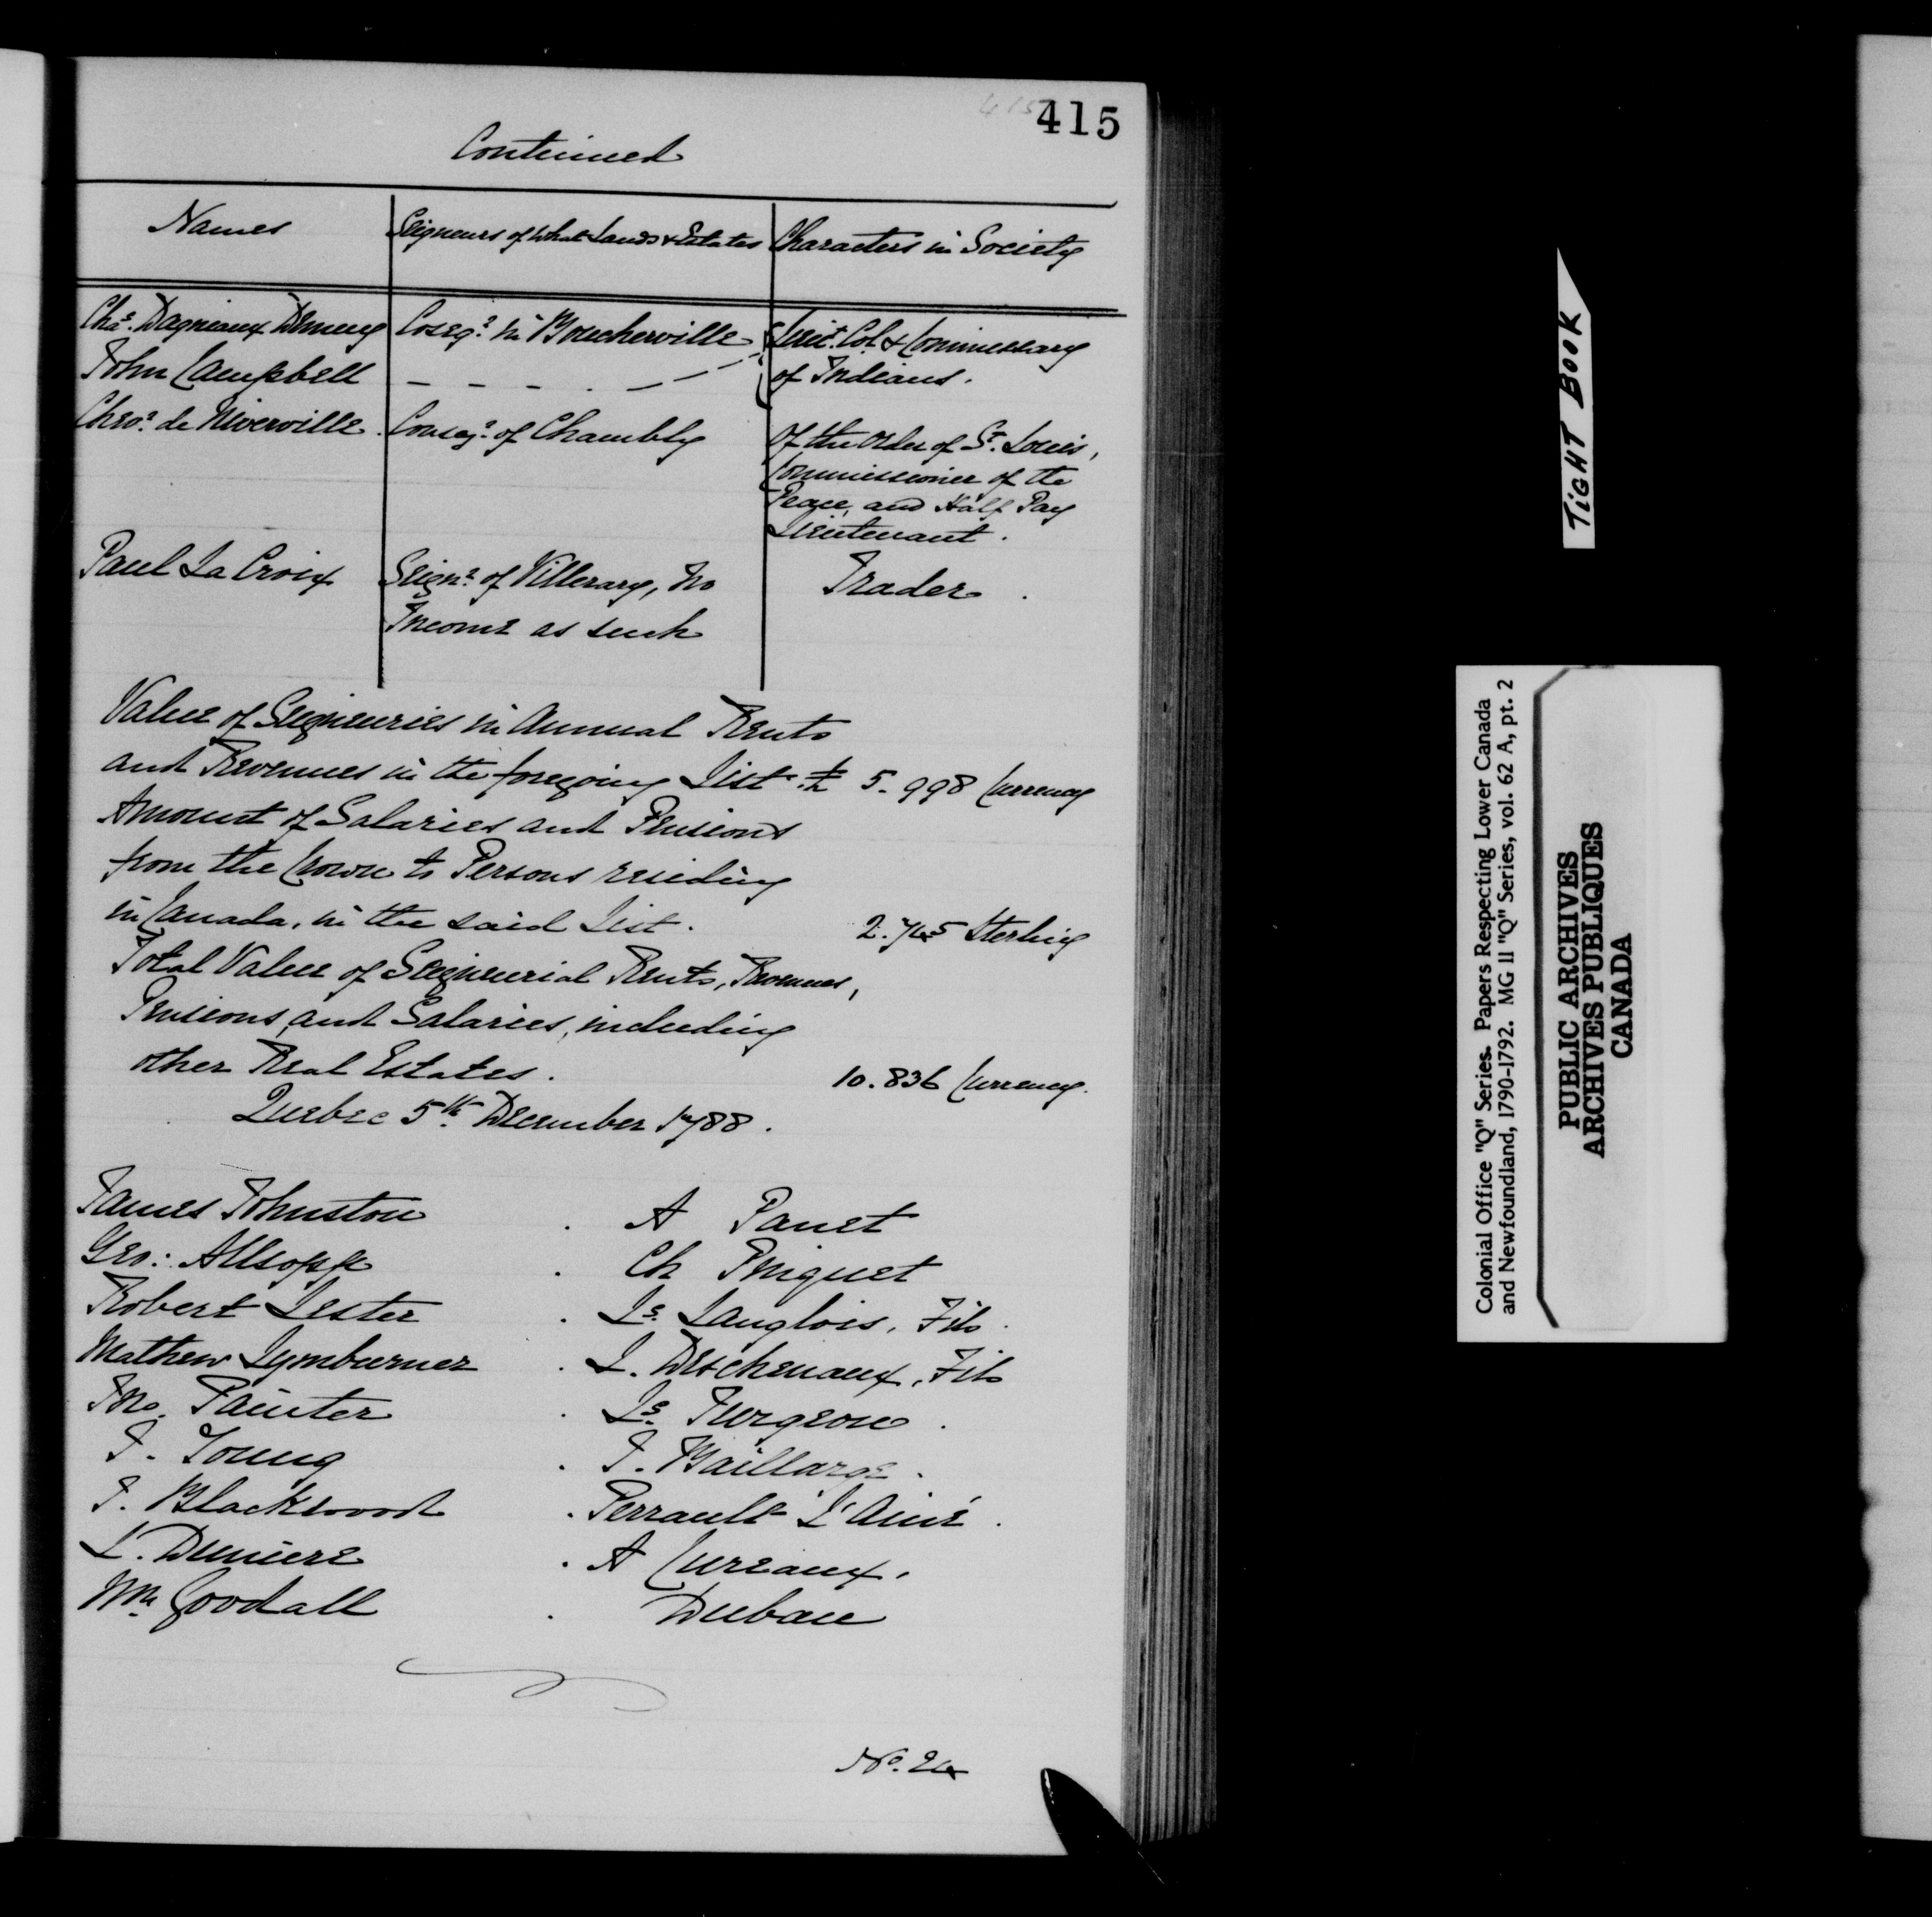 415
415
Continued
Names | Seigneurs of what Lands & Estates | Characters in Society
Chas. Dagneaux Demuy | Coseqr. in Boucherville | Lieut. Col. & Commissary
John Campbell | — — — . — — | of Indians.
Chevr. de Niverville | Conseqr. of Chambly | Of the Order of St. Louis,
Commissioner of the
Peace, and Half Pay
Lieutenant.
Paul La Croix | Seignr. of Villeray, no | Trader.
Income as such
Value of Seigneuries in Annual Rents
and Revenues in the foregoing List. £ 5.998 Currency
Amount of Salaries and Pensions
from the Crown to Persons residing
in Canada, in the said List. 2.745 Sterling
Total Value of Seigneurial Rents, Revenues,
Pensions, and Salaries, including
other Real Estates. 10.836 Currency.
Quebec 5th December 1788.
James Johnston . A Panet
Geo: Allsopp . Ch Pinguet
Robert Lester . Ls. Langlois, Fils.
Mathew Lymburner . L. Deschenaux, Fils
Jno. Painter . Ls. Turgeon.
J. Young . J. Baillarge.
J. Blackwood . Perrault L'Ainé.
L. Duniere . A Cureaux.
Wm. Goodall . Dubau
No. 24
TIGHT BOOK
Colonial Office "Q" Series. Papers Respecting Lower Canada
and Newfoundland, 1790-1792. MG 11 "Q" Series, vol. 62 A, pt. 2
PUBLIC ARCHIVES
ARCHIVES PUBLIQUES
CANADA